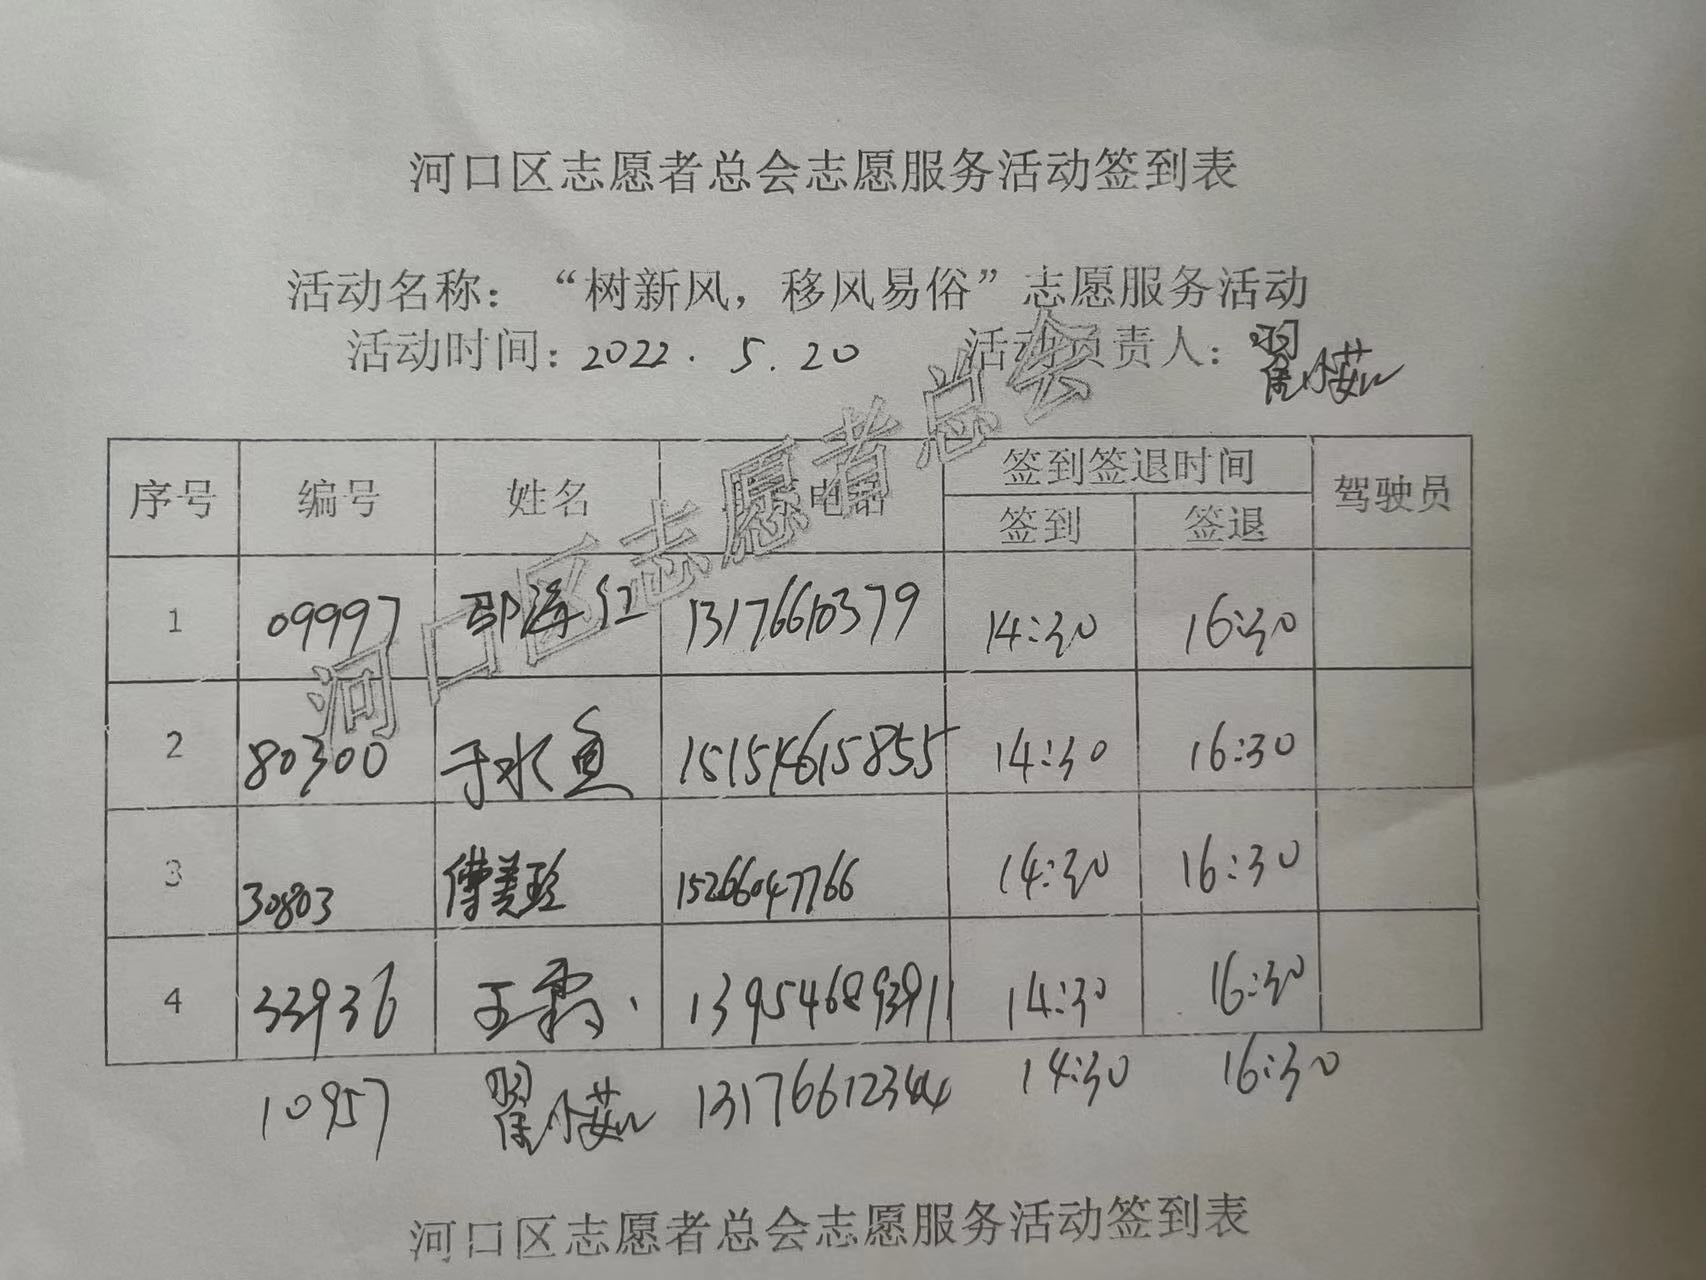 河口区志愿者总会志愿服务活动签到表
活动名称：“树新风，移风易俗”志愿服务活动
活动时间：2022.5.20 活动负责人：翟小茹
序号 编号 姓名 电话 签到签退时间 驾驶员
签到 签退
1 09997 邵海红 13176610379 14:30 16:30
2 80300 于水鱼 15154615855 14:30 16:30
3 30803 傅美玲 15266047766 14:30 16:30
4 33936 王霞 13954689391 14:30 16:30
10957 翟小茹 13176612344 14:30 16:30
河口区志愿者总会
河口区志愿者总会志愿服务活动签到表